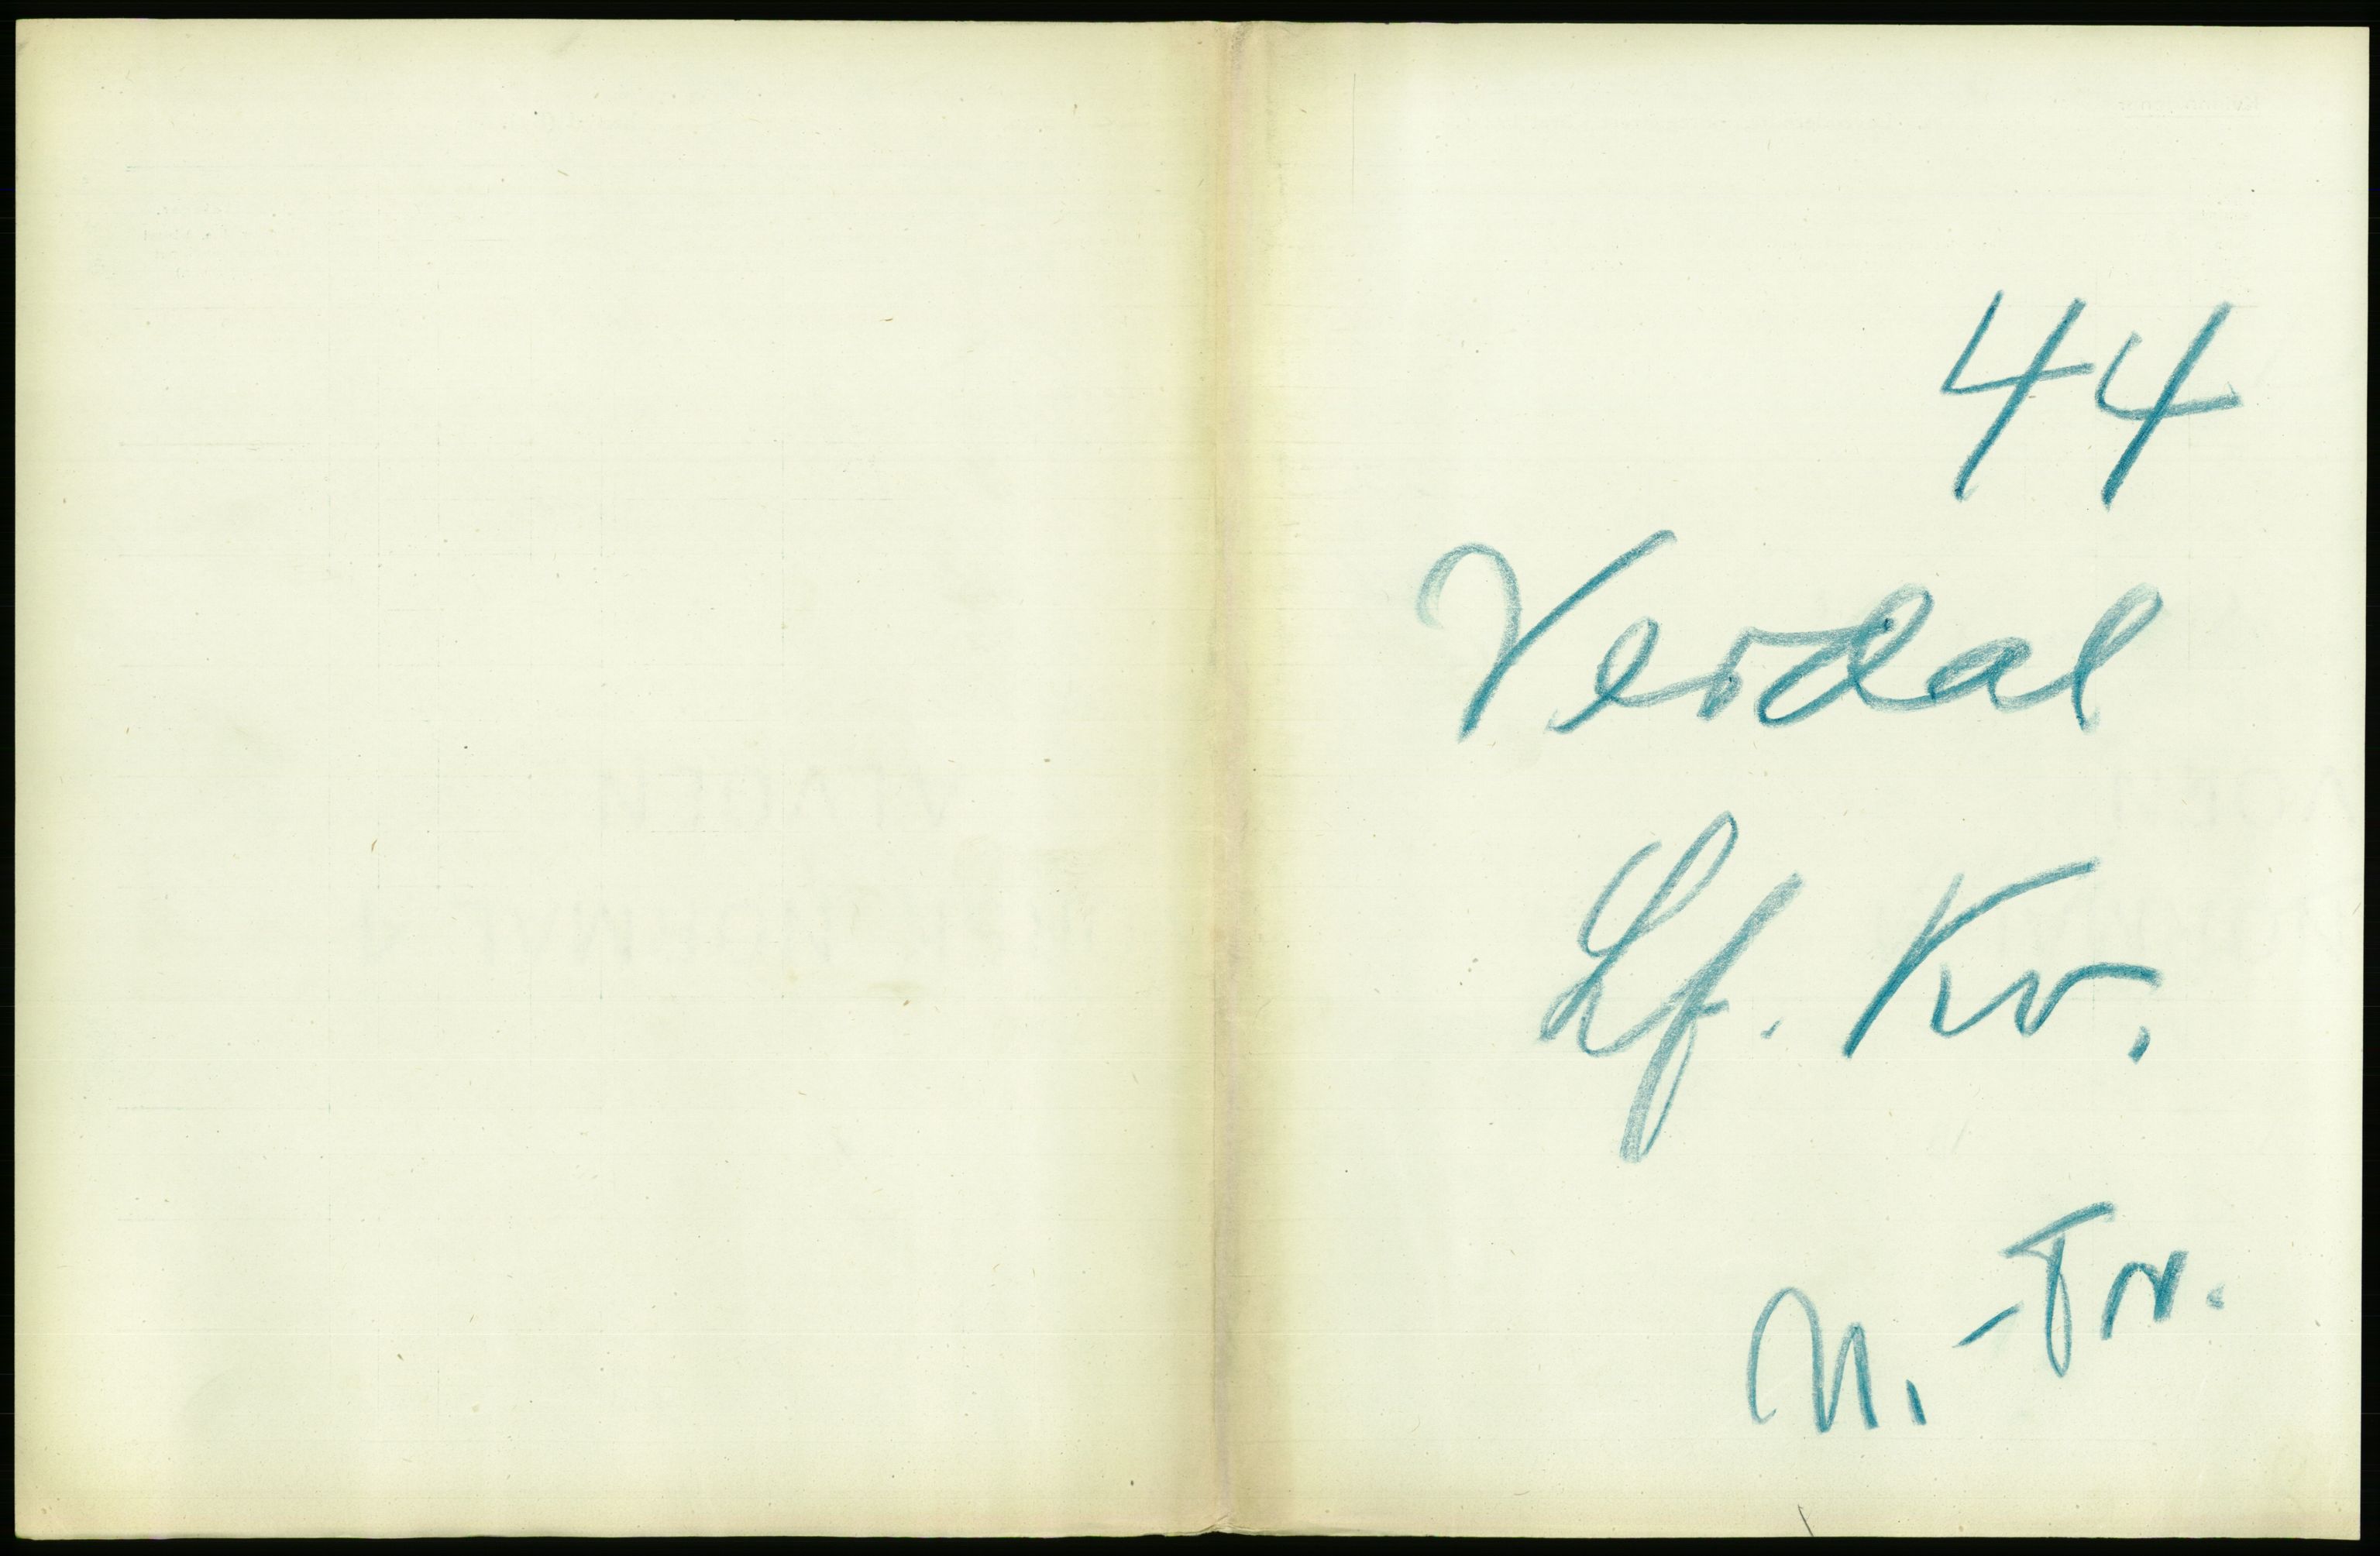 44
Verdal
Lf. Kv.
N.-Tr.